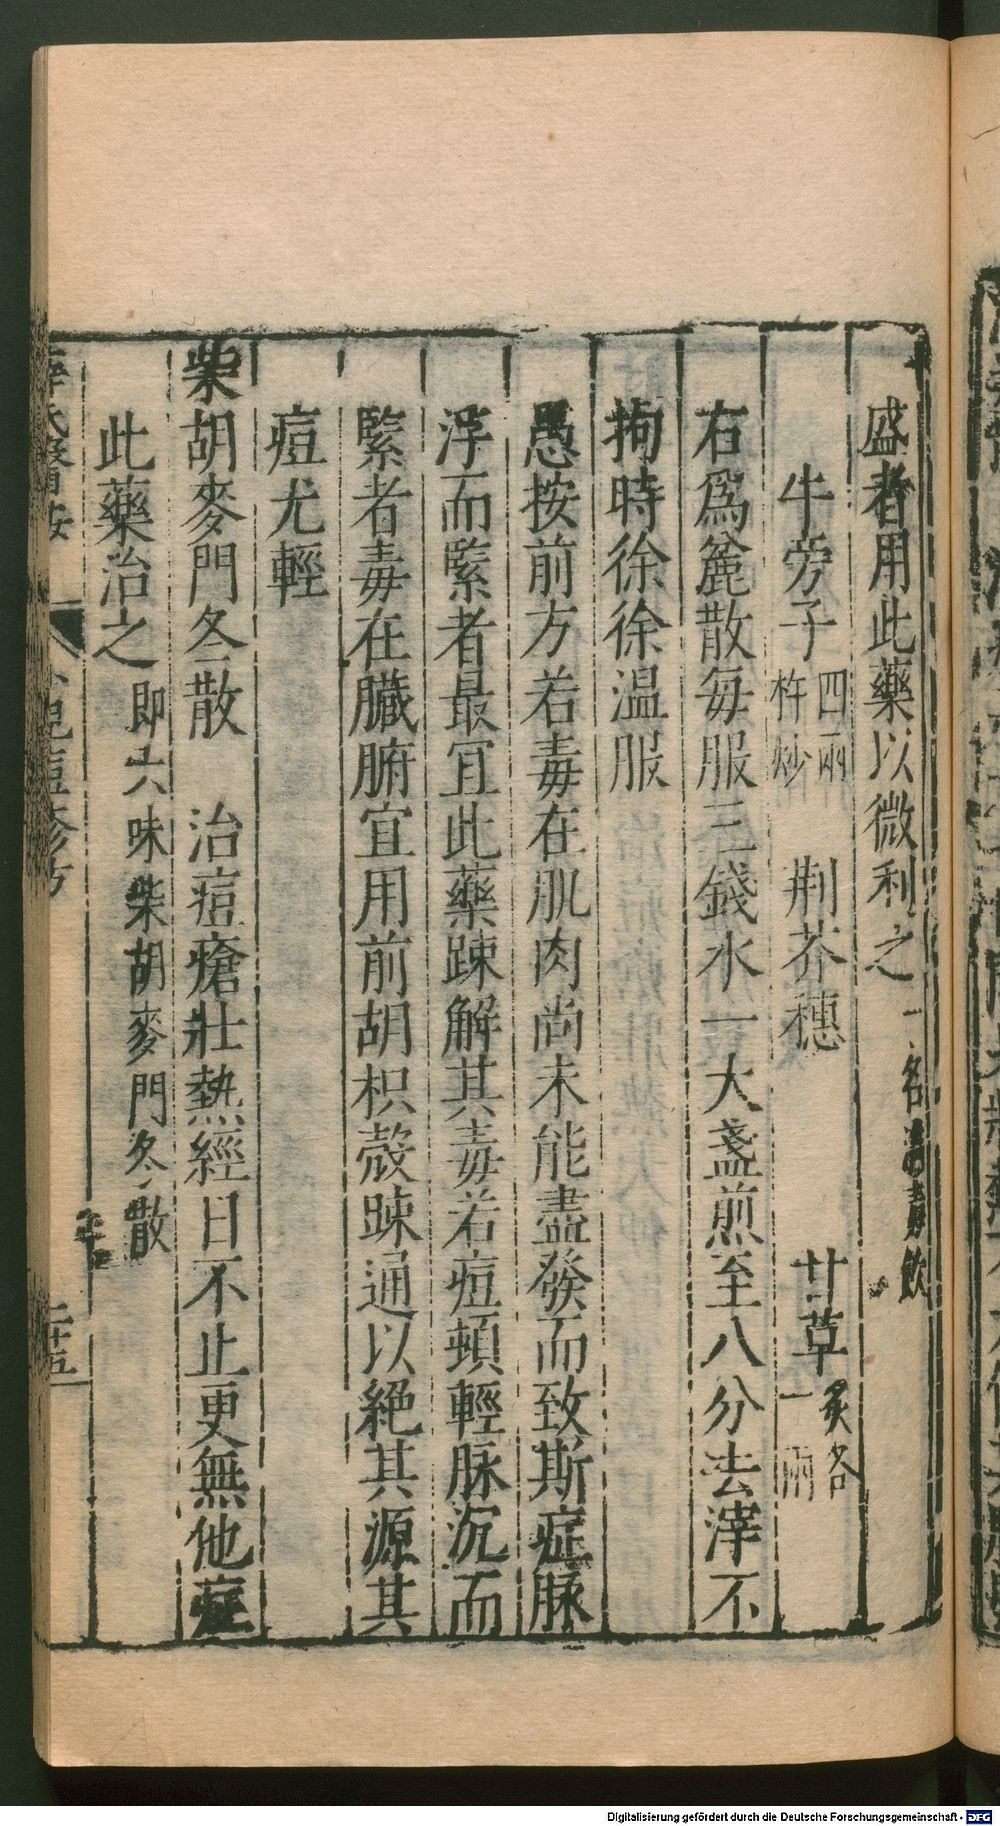 盛者用此藥以微利之一名消毒飲
牛旁子四兩杵炒　荆芥穗　甘草炙各一兩
右爲麄散每服三錢水一大盞煎至八分去滓不
拘時徐徐温服
愚按前方若毒在肌肉尚未能盡發而致斯症脉
浮而緊者最冝此藥踈解其毒若痘頓輕脉沉而
緊者毒在臟腑宜用前胡枳殻踈通以絕其源其
痘尤輕
柴胡麥門冬散　治痘瘡壯熱經日不止更無他症
此藥治之即六味柴胡麥門冬散
二十五
Digitalisierung gefördert durch die Deutsche Forschungsgemeinschaft - DFG